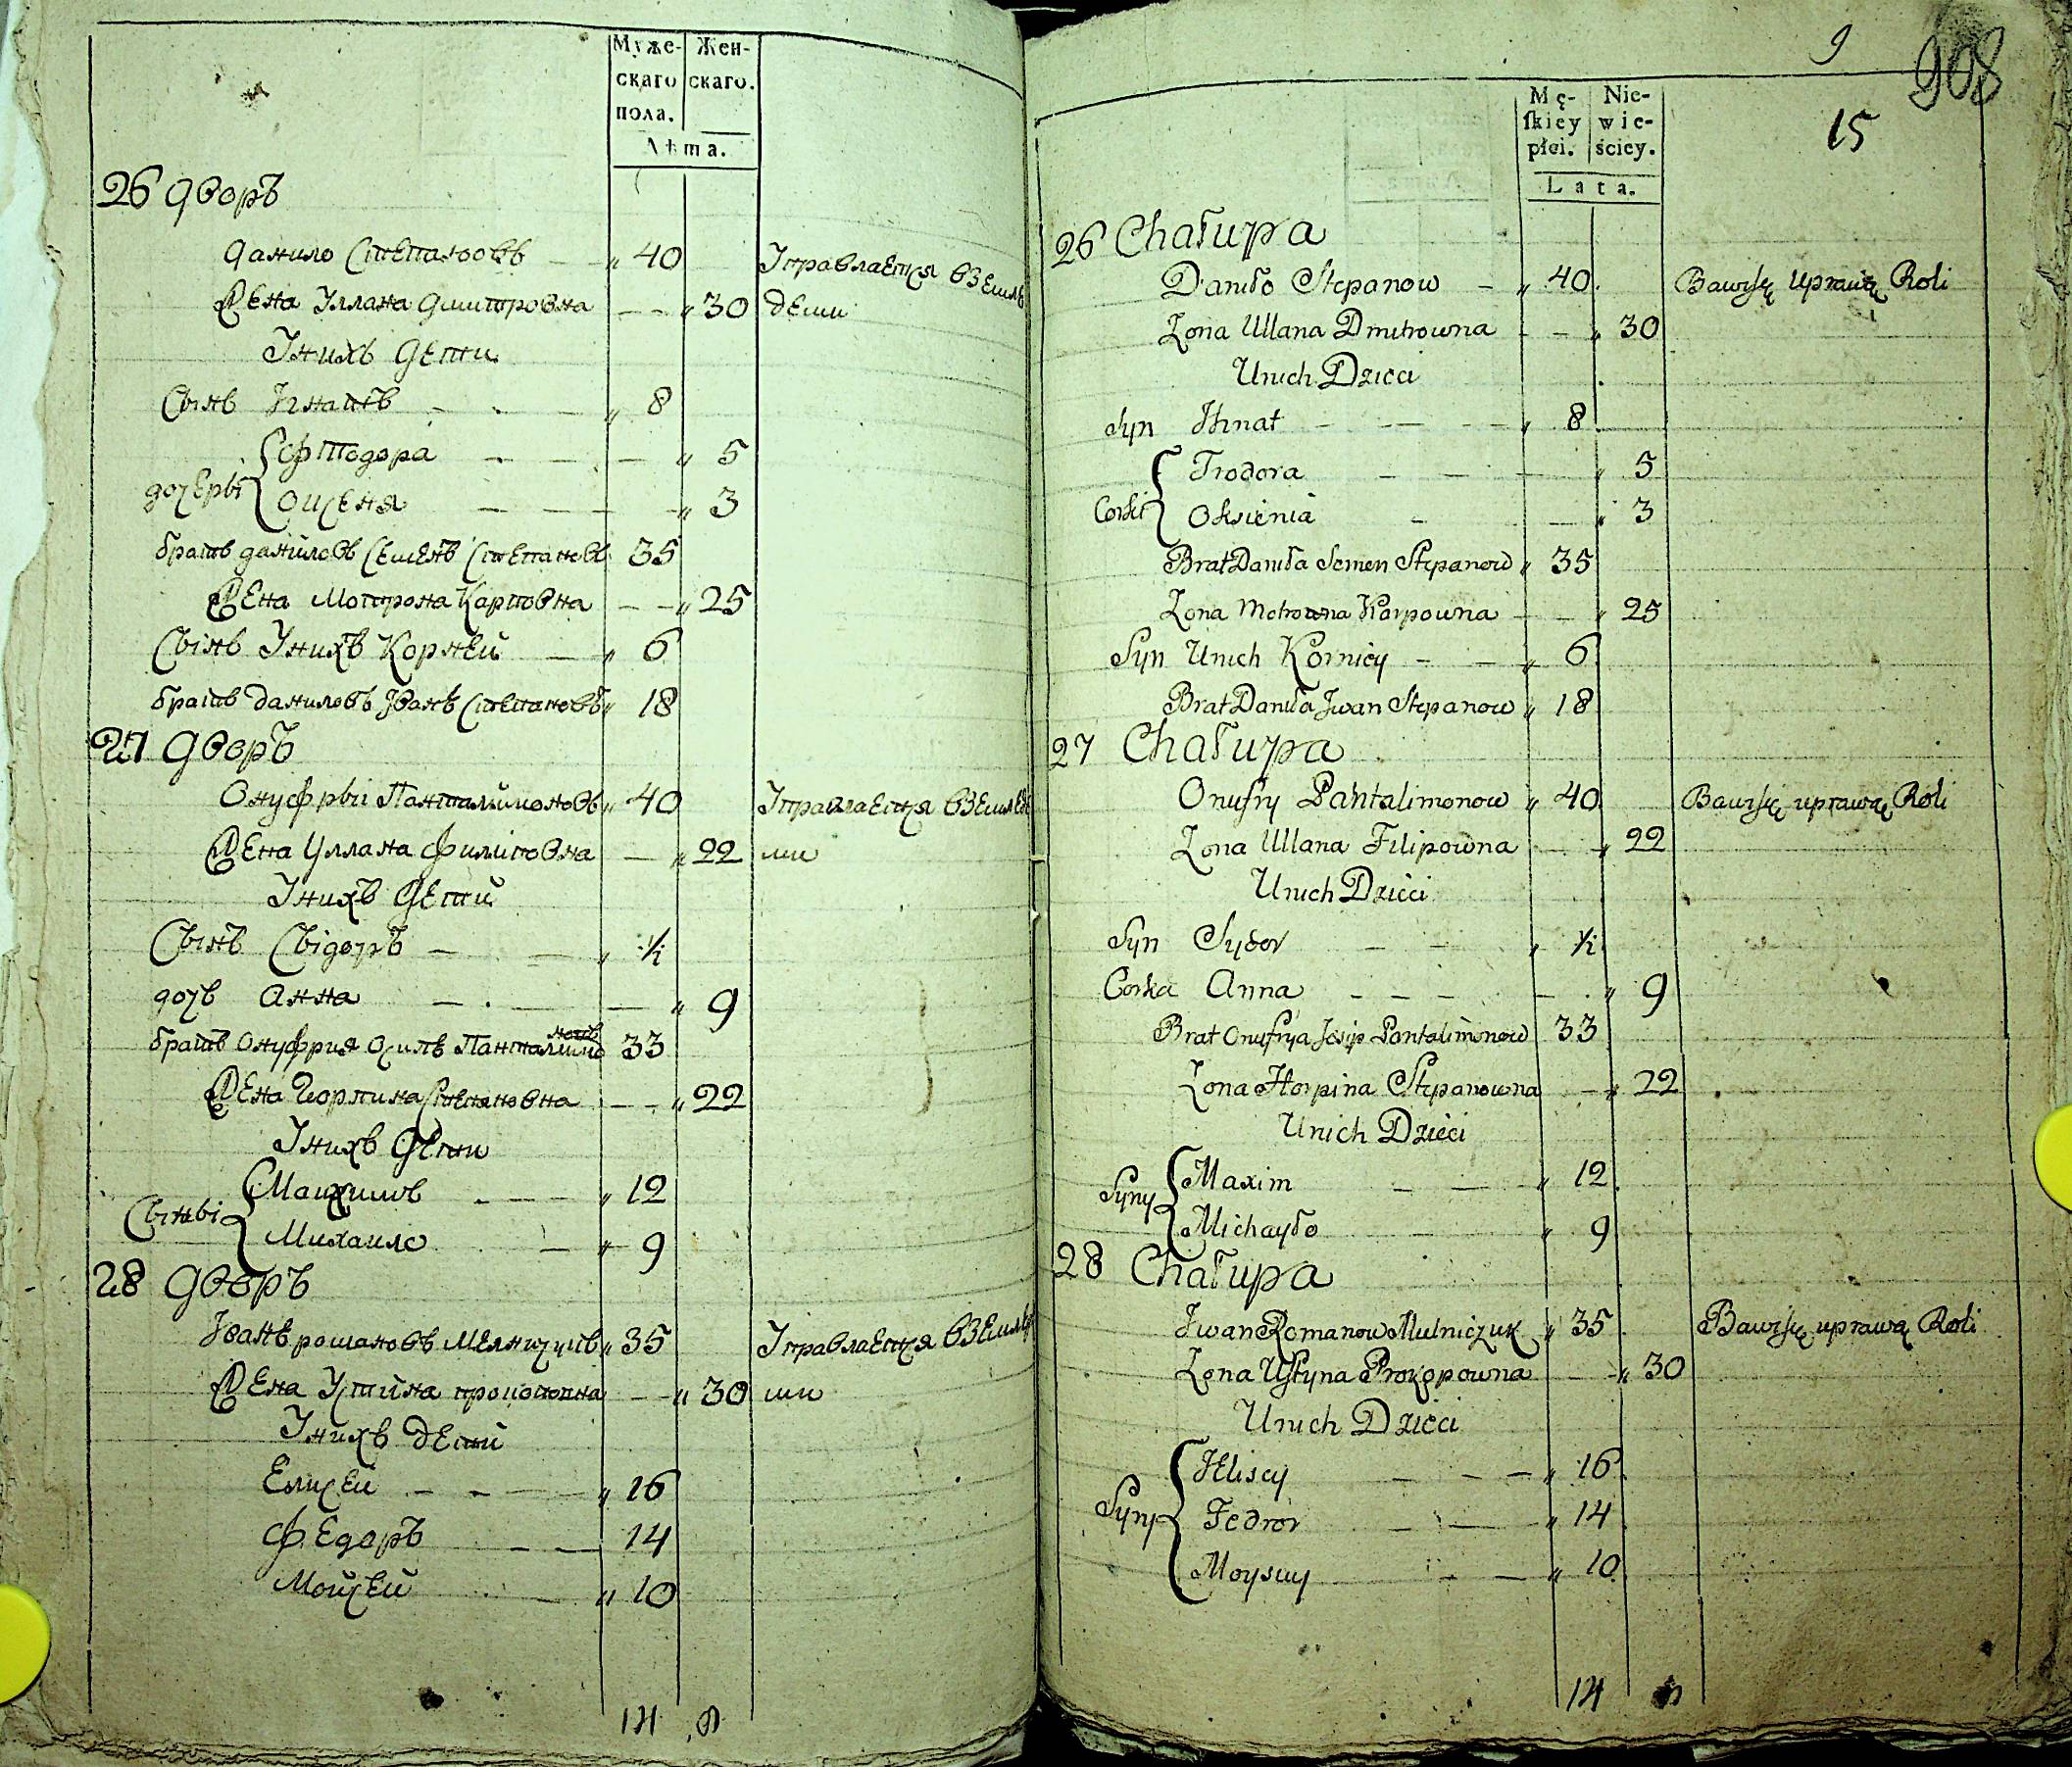 Муже- Жен-
скаго скаго.
пола.
Лѣта.
26 дворъ
Данило Степановъ — „ 40 Управлаетця вземлѣ
Жена Уллана Дмитровна — — „ 30 дели
Унихъ дети
Сынъ Игнатъ - - — „ 8
дочерьі { Фтодора - — — „ 5
Оксеня — — — „ 3
братъ даниловъ Семенъ Степановъ 35
Жена Мотрона Карповна — — „ 25
Сынъ Унихъ Корней — „ 6
братъ даниловъ Иванъ Степановъ „ 18
27 дворъ
Онуфрьи Панталимоновъ „ 40 Управлаетця вземледе
Жена Уллана Филиповна — „ 22 ли
Унихъ дети
Сынъ Сыдоръ - — „ ½
дочь Анна — - — „ 9
братъ Онуфрия Осипъ Панталимо новъ 33
Жена Горпина Степановна — — „ 22
Унихъ дети
Сыны { Макъсимъ - - — „ 12
Михаило — „ 9
28 дворъ
Иванъ романовъ Мелничукъ „ 35 Управлаетця вземле
Жена Устина прокоповна — — „ 30 ли
Унихъ дети
Елисеи - - — „ 16
Федоръ — — 14
Мойсей — „ 10
14 8
9 908
15
Mę- Nie-
ſkiey wie-
płci. ściey.
Lata.
26 Chałupa
Daniło Stepanow - „ 40 Bawisię uprawą Roli
Zona Ullana Dmitrowna - — „ 30
Unich Dzieci
Syn Ihnat - — - „ 8
Corki { Tiodora - — — „ 5
Oksienia - — „ 3
Brat Daniła Semen Stepanow „ 35
Zona Motrowna Karpowna — — „ 25
Syn Unich Korniey - — „ 6
Brat Daniła Jwan Stepanow „ 18
27 Chałupa
Onufry Pantalimonow „ 40 Bawisię uprawą Roli
Zona Ullana Filipowna — „ 22
Unich Dzieci
Syn Sydor - - „ ½
Corka Anna - - - - „ 9
Brat Onufrya Josip Pantalimonow 33
Zona Horpina Stepanowna — „ 22
Unich Dzieci
Syny { Maxim - — „ 12
Michayło - „ 9
28 Chałupa
Iwan Romanow Mielniczuk „ 35 Bawisię uprawą Roli
Zona Ustyna Prokopowna — „ 30
Unich Dzieci
Syny { Jelisey - - — „ 16
Fedror - — „ 14
Moysiey - — „ 10
14 8